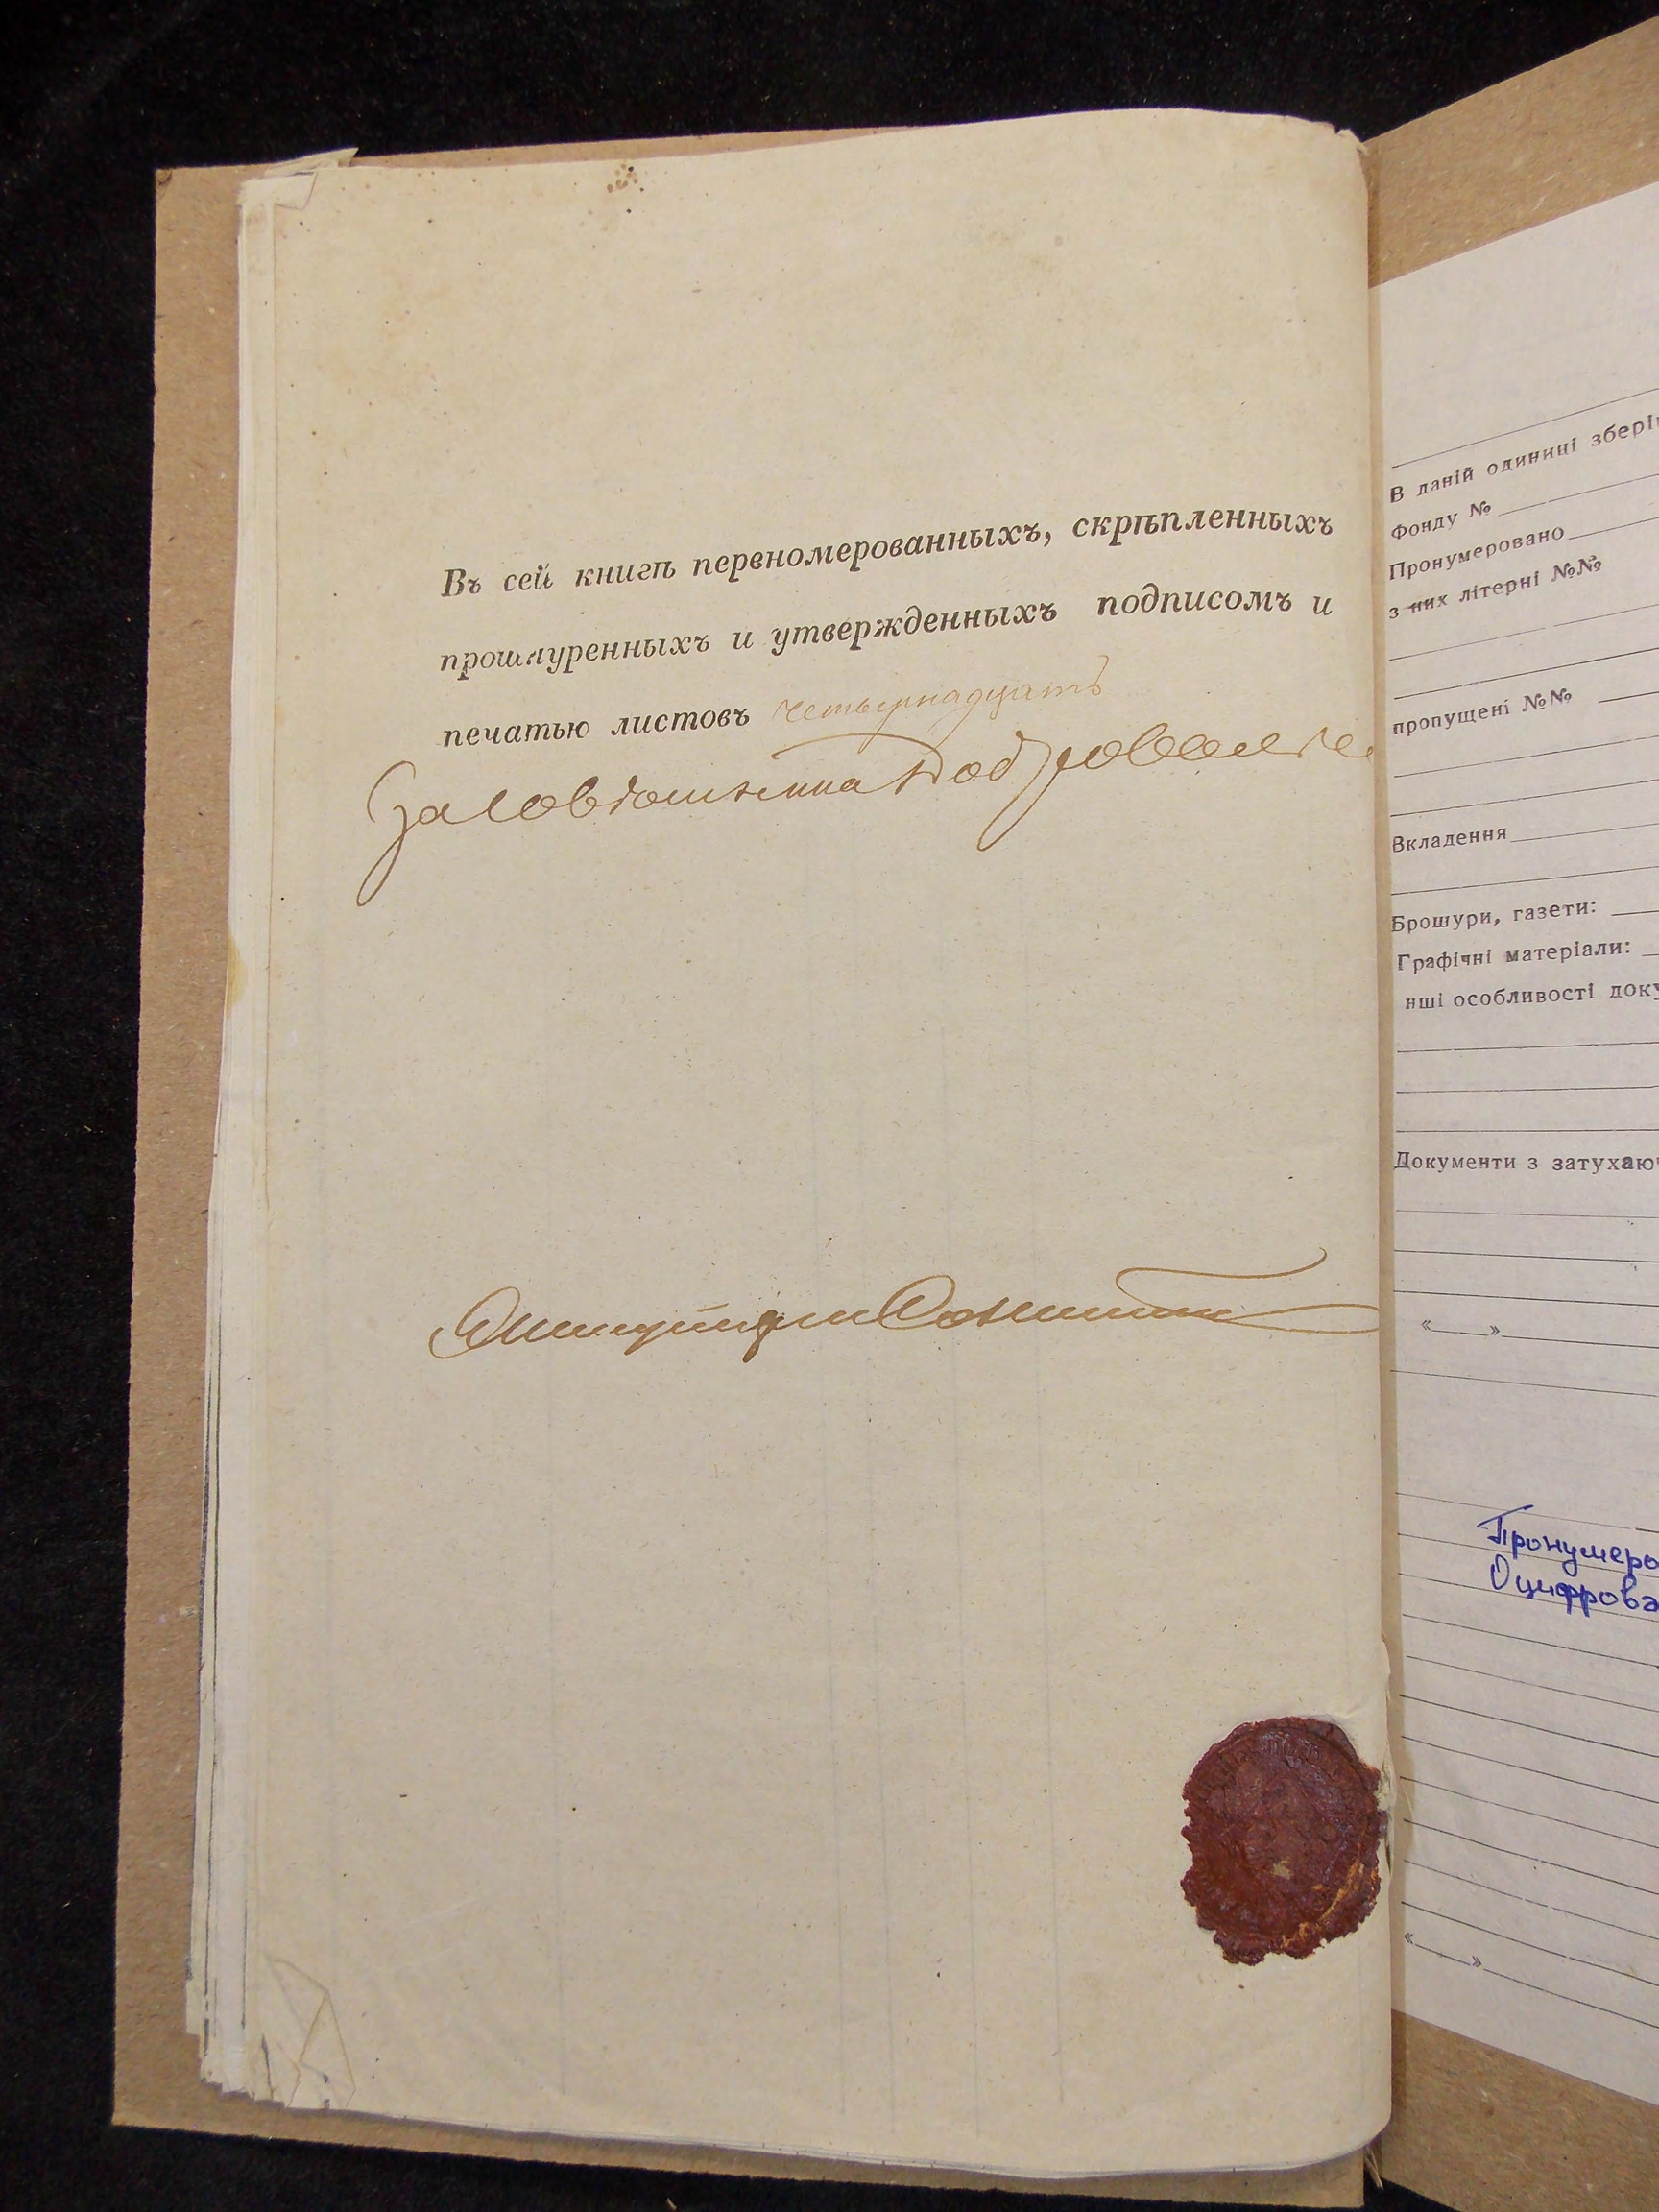 Въ сей книгѣ перено­мерованныхъ, скрѣпленныхъ
прошнуренныхъ и утвержденныхъ подписомъ и
печатью листовъ четырнадцать
За Совѣтника
В даній одиниці збері
Фонду №
Пронумеровано
з них літерні №№
пропущені №№
Вкладення
Брошури, газети:
Графічні матеріали:
нші особливості доку
Документи з затухаюч
« »
Пронумеро
Оцифрова
« »